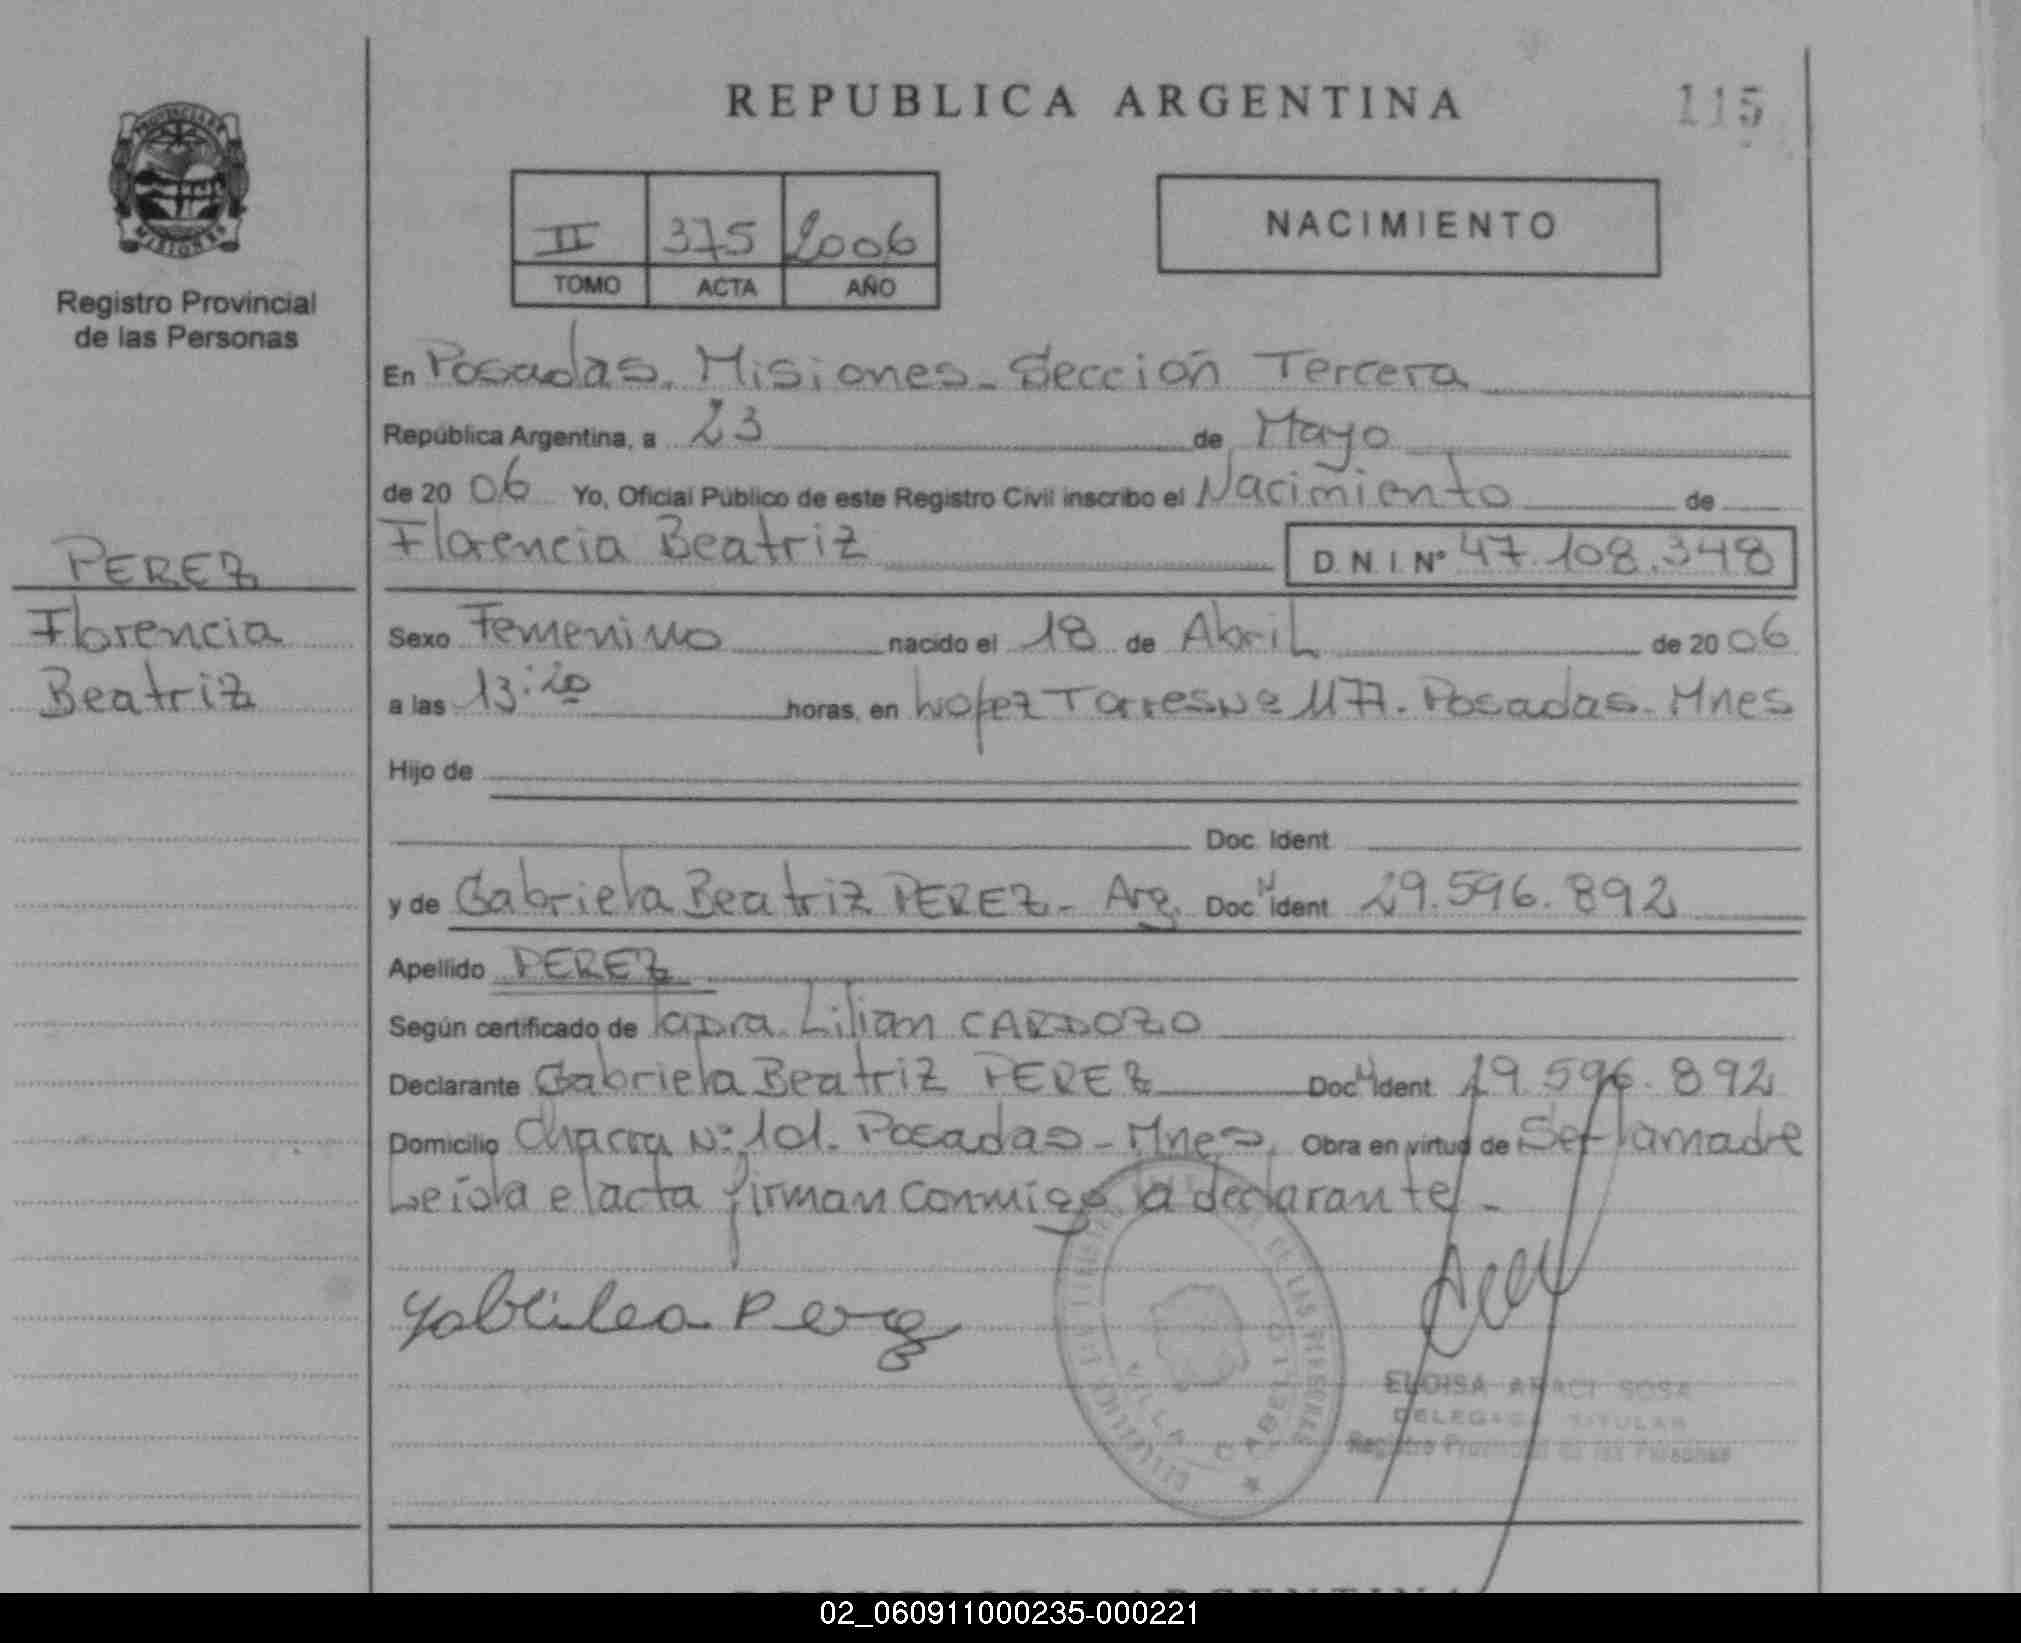 REPUBLICA ARGENTINA
115
PROVINCIA DE
MISIONES
Registro Provincial
de las Personas
II 375 2006
TOMO ACTA AÑO
NACIMIENTO
En Posadas. Misiones. Sección Tercera
República Argentina, a 23 de Mayo
de 20 06 Yo, Oficial Público de este Registro Civil inscribo el Nacimiento de
Florencia Beatriz D.N.I. Nº 47.108.348
PEREZ
Florencia
Beatriz
Sexo Femenino nacido el 18 de Abril de 20 06
a las 13:20 horas, en Lopez Torres Nº 1177. Posadas. Mnes
Hijo de
Doc. Ident
y de Gabriela Beatriz PEREZ - Arg. Doc. Ident 29.596.892
Apellido PEREZ
Según certificado de Lilian CARDOZO
Declarante Gabriela Beatriz PEREZ Doc. Ident 29.596.892
Domicilio Chacra Nº: 101. Posadas - Mnes. Obra en virtud de Ser la madre
Leída el acta firman conmigo la declarante -
Perez
DE LAS PERSONAS
VILLA CABELLO
ELOISA ARACI SOSA
DELEGADA TITULAR
Registro Provincial de las Personas
REPUBLICA ARGENTINA
02_060911000235-000221